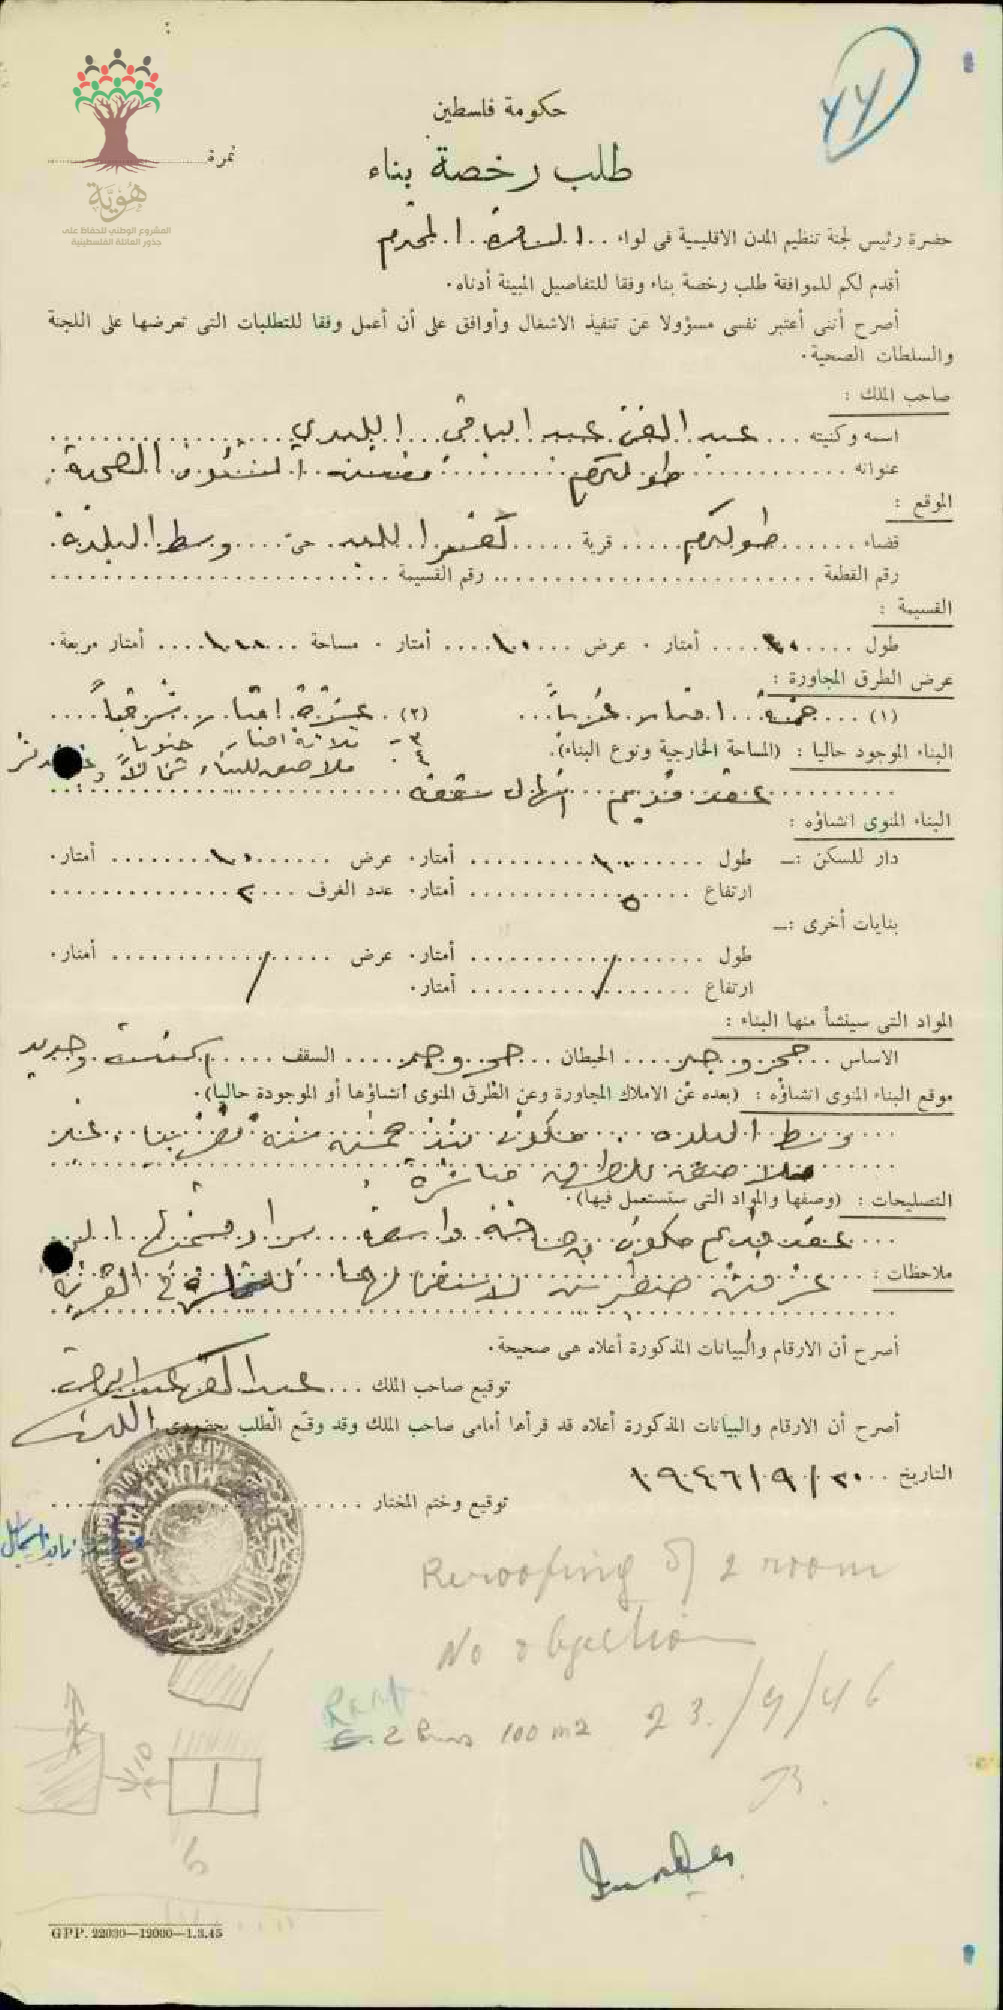 ٧٧
هُوِيَّة
المشروع الوطني للحفاظ على
جذور العائلة الفلسطينية
حكومة فلسطين
نمرة
طلب رخصة بناء
حضرة رئيس لجنة تنظيم المدن الاقليمية فى لواء السامرة المحترم
أقدم لكم للموافقة طلب رخصة بناء وفقا للتفاصيل المبينة أدناه.
أصرح أننى أعتبر نفسى مسؤولا عن تنفيذ الاشغال وأوافق على أن أعمل وفقا للتطلبات التى تعرضها على اللجنة
والسلطات الصحية.
صاحب الملك :
اسمه وكنيته عبد الغني عبد الباقي اللبدي
عنوانه طولكرم مفتش الشئون الصحية
الموقع :
قضاء طولكرم قرية كفر اللبد حى وسط البلدة
رقم القطعة رقم القسيمة
القسيمة :
طول ١٠ أمتار . عرض ١٠ أمتار . مساحة ١٠٠ أمتار مربعة.
عرض الطرق المجاورة :
(١) خمسة امتار غرباً (٢) عشرة امتار شرقياً
٣- ثلاثة امتار جنوباً
٤- ملاصق للبناء شمالاً
البناء الموجود حاليا : (المساحة الخارجية ونوع البناء).
عقد قديم انهال سقفه
البناء المنوى انشاؤه :
دار للسكن :— طول ١٠ أمتار. عرض ١٠ أمتار.
ارتفاع ٥ أمتار. عدد الغرف ٢
بنايات أخرى :—
طول / أمتار. عرض / أمتار.
ارتفاع / أمتار.
المواد التى سينشأ منها البناء :
الاساس حجر وجير الحيطان حجر وجير السقف اسمنت وحديد
موقع البناء المنوى انشاؤه : (بعده عن الاملاك المجاورة وعن الطرق المنوى انشاؤها أو الموجودة حاليا).
وسط البلده تقريبا غير
ملاصق للطريق مباشرة
التصليحات : (وصفها والمواد التى ستستعمل فيها).
عقد قديم مكون من ساحة واسعة يراد قسمتها الى
ملاحظات : غرفتين صغيرتين لاستعمالها في القرية
أصرح أن الارقام والبيانات المذكورة أعلاه هى صحيحة.
توقيع صاحب الملك عبد الغني عبد الباقي اللبدي
أصرح أن الارقام والبيانات المذكورة أعلاه قد قرأها أمامى صاحب الملك وقد وقع الطلب بحضورى.
التاريخ ٢٠/٩/١٩٤٦
توقيع وختم المختار
MUKHTAR OF
Reroofing of 2 room
No objection
23/9/46
2 Rms 100 m2
10
GPP. 22030—12000—1.3.45